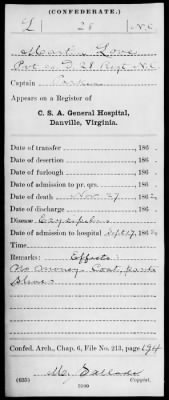 (CONFEDERATE.)
L 28 N.C.
Martin Love
Pvt Co D. 28 Regt N.C.
Captain
Appears on a Register of
C. S. A. General Hospital,
Danville, Virginia.
Date of transfer 186 .
Date of desertion 186 .
Date of furlough 186 .
Date of admission to pr. qrs. 186 .
Date of death Nov 27 1862.
Date of discharge 186 .
Disease Erysipelas
Date of admission to hospital Sept 17, 1862.
Time
Remarks: Effects:
No money Coat, pants
Shoes
Confed. Arch., Chap. 6, File No. 213, page 194
(635) Copyist.